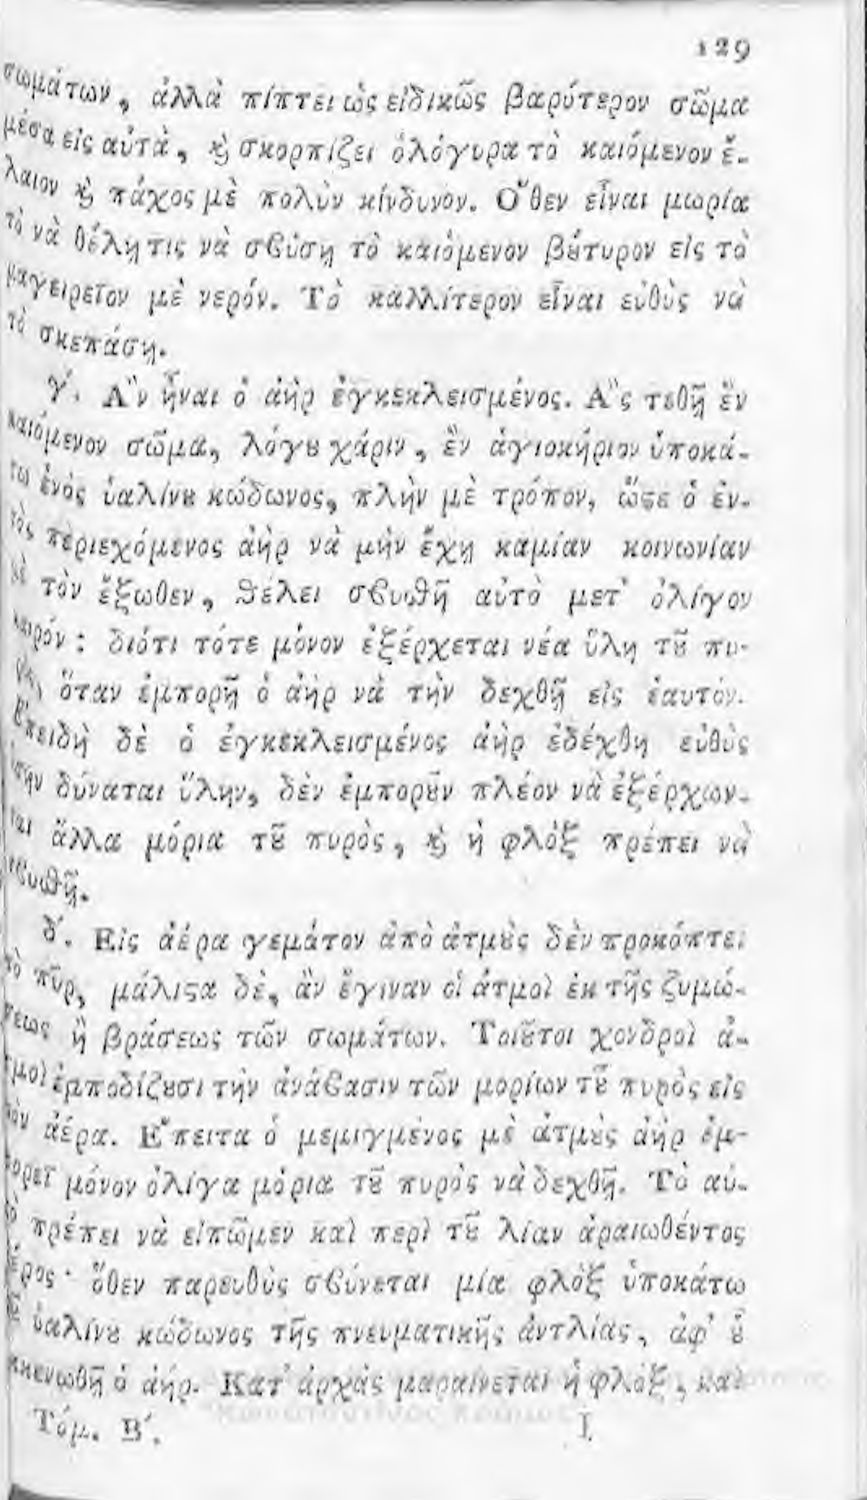 129
σωμάτων, ἀλλὰ πίπτει ὡς εἰδικῶς βαρύτερον σῶμα
μέσα εἰς αὐτὰ, ϗ σκορπίζει ὁλόγυρα τὸ καιόμενον ἔ-
λαιον ϗ πάχος μὲ πολὺν κίνδυνον. Ὅθεν εἶναι μωρία
τὸ νὰ θέλῃ τις νὰ σβύσῃ τὸ καιόμενον βȣ́τυρον εἰς τὸ
μαγειρεῖον μὲ νερόν. Τὸ καλλίτερον εἶναι εὐθὺς νὰ
τὸ σκεπάσῃ.
γ΄. Ἂν ἦναι ὁ ἀὴρ ἐγκεκλεισμένος. Ἂς τεθῇ ἓν
καιόμενον σῶμα, λόγȣ χάριν, ἓν ἁγιοκήριον ὑποκά-
τω ἑνὸς ὑαλίνȣ κώδωνος, πλὴν μὲ τρόπον, ὥϛε ὁ ἐν-
τὸς περιεχόμενος ἀὴρ νὰ μὴν ἔχῃ καμίαν κοινωνίαν
μὲ τὸν ἔξωθεν, θέλει σβυσθῇ αὐτὸ μετ' ὀλίγον
καιρόν: διότι τότε μόνον ἐξέρχεται νέα ὕλη τȣ͂ πυ-
ρὸς, ὅταν ἐμπορῇ ὁ ἀὴρ νὰ τὴν δεχθῇ εἰς ἑαυτόν.
Ἐπειδὴ δὲ ὁ ἐγκεκλεισμένος ἀὴρ ἐδέχθη εὐθὺς
ὅσην δύναται ὕλην, δὲν ἐμπορȣ͂ν πλέον νὰ ἐξέρχων-
ται ἄλλα μόρια τȣ͂ πυρὸς, ϗ ἡ φλὸξ πρέπει νὰ
σβυσθῇ.
δ΄. Εἰς ἀέρα γεμάτον ἀπὸ ἀτμȣ̀ς δὲν προκόπτει
τὸ πῦρ, μάλιϛα δὲ, ἂν ἔγιναν οἱ ἀτμοὶ ἐκ τῆς ζυμώ-
σεως ἢ βράσεως τῶν σωμάτων. Τοιȣ͂τοι χονδροὶ ἀ-
τμοὶ ἐμποδίζȣσι τὴν ἀνάβασιν τῶν μορίων τȣ͂ πυρὸς εἰς
τὸν ἀέρα. Ἔπειτα ὁ μεμιγμένος μὲ ἀτμȣ̀ς ἀὴρ ἐμ-
πορεῖ μόνον ὀλίγα μόρια τȣ͂ πυρὸς νὰ δεχθῇ. Τὸ αὐ-
τὸ πρέπει νὰ εἰπῶμεν καὶ περὶ τȣ͂ λίαν ἀραιωθέντος
ἀέρος· ὅθεν παρευθὺς σβύνεται μία φλὸξ ὑποκάτω
τȣ͂ ὑαλίνȣ κώδωνος τῆς πνευματικῆς ἀντλίας, ἀφ' ȣ̔͂
κκενωθῇ ὁ ἀήρ. Κατ' ἀρχὰς μαραίνεται ἡ φλὸξ, καὶ
Τόμ. Β΄. I